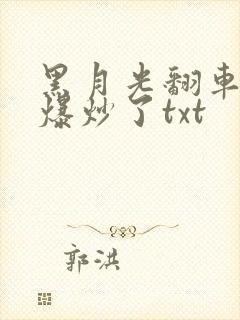 黑月光翻車
爆炒了txt
郭洪